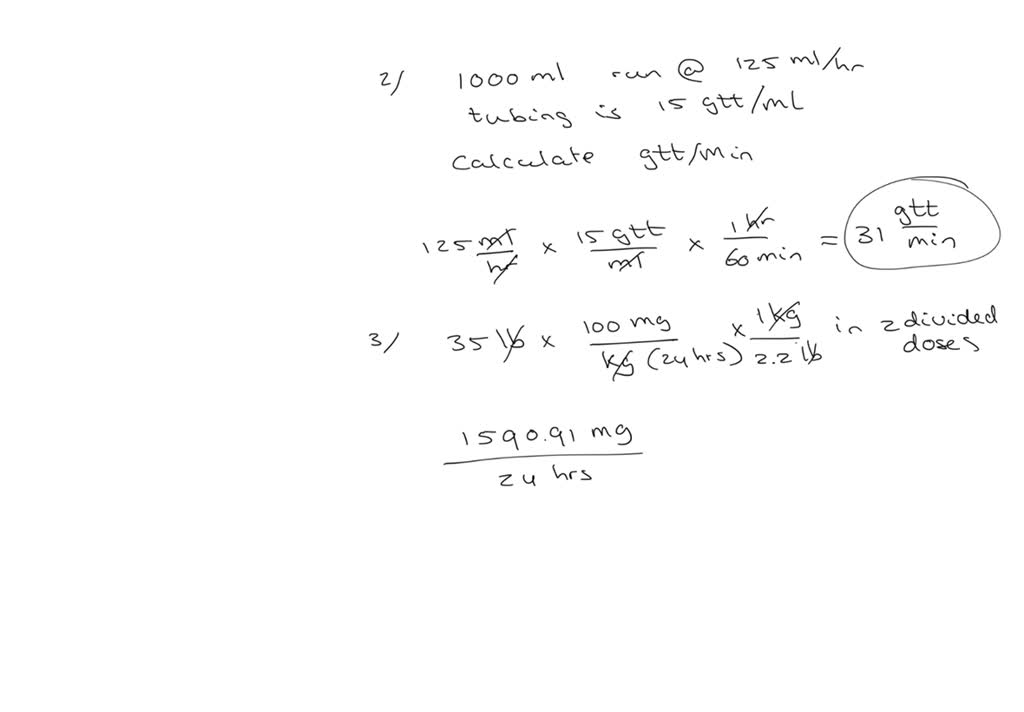 2/ 1000 ml run @ 125 ml/hr
tubing is 15 gtt/mL
Calculate gtt/min
125 ml/hr x 15 gtt/ml x 1 hr/60 min = 31 gtt/min
3/ 35 lb x 100 mg/kg (24 hrs) x 1 kg/2.2 lb in 2 divided doses
1590.91 mg
24 hrs